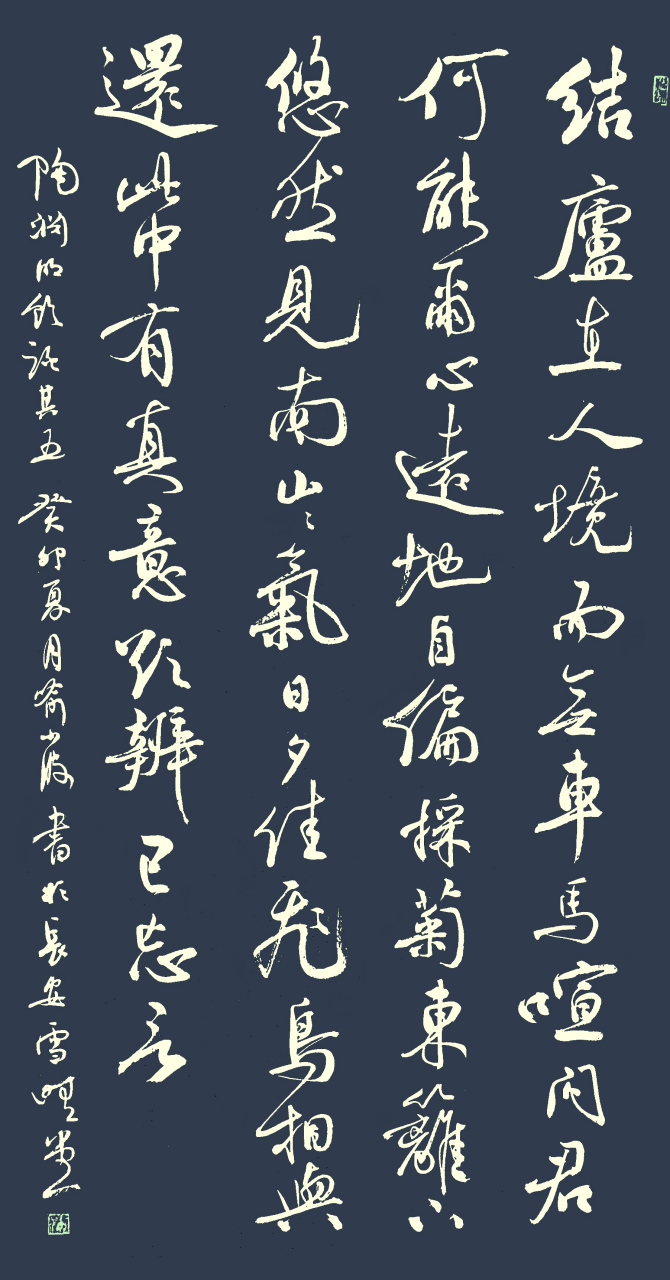 結廬在人境而無車馬喧問君
何能爾心遠地自偏採菊東籬下
悠然見南山〻氣日夕佳飛鳥相與
還此中有真意欲辨已忘言
陶淵明飲酒其五 癸卯夏月喻小書於長安雪堂